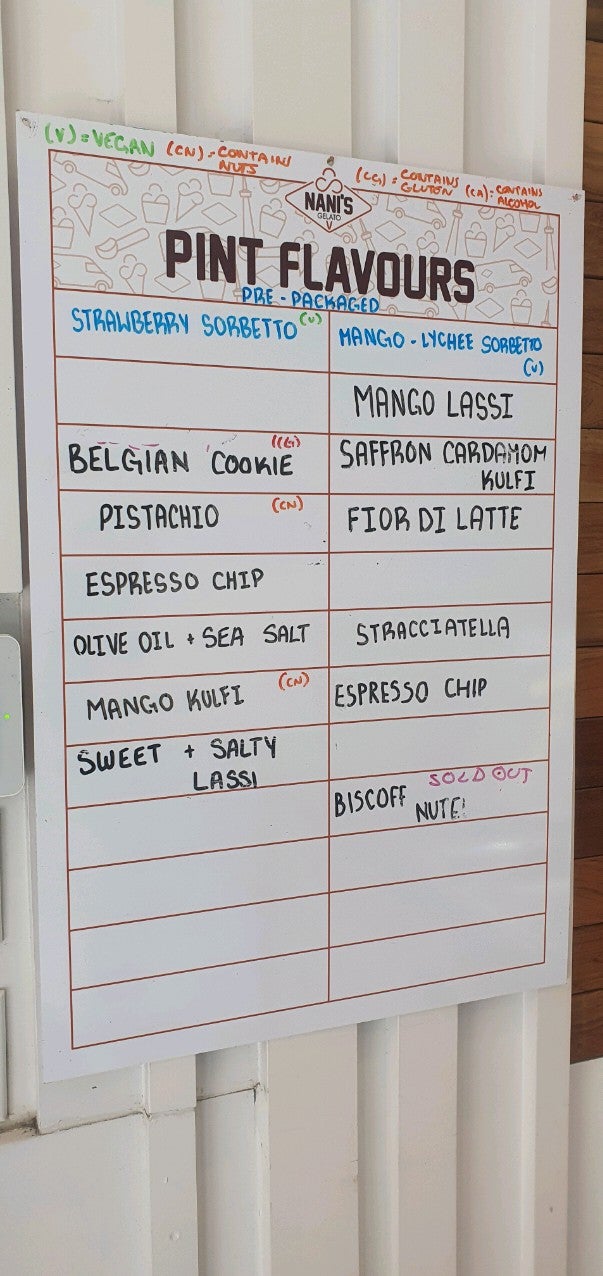 (V) = VEGAN (CN) - CONTAINS NUTS (CG) = CONTAINS GLUTON (CA) - CONTAINS ALCOHOL
NANI'S
GELATO
PINT FLAVOURS
PRE - PACKAGED
STRAWBERRY SORBETTO (V)
MANGO - LYCHEE SORBETTO
(V)
MANGO LASSI
BELGIAN COOKIE (CG)
SAFFRON CARDAMOM
KULFI
PISTACHIO (CN)
FIOR DI LATTE
ESPRESSO CHIP
OLIVE OIL + SEA SALT
STRACCIATELLA
MANGO KULFI (CN)
ESPRESSO CHIP
SWEET + SALTY
LASSI
SOLD OUT
BISCOFF